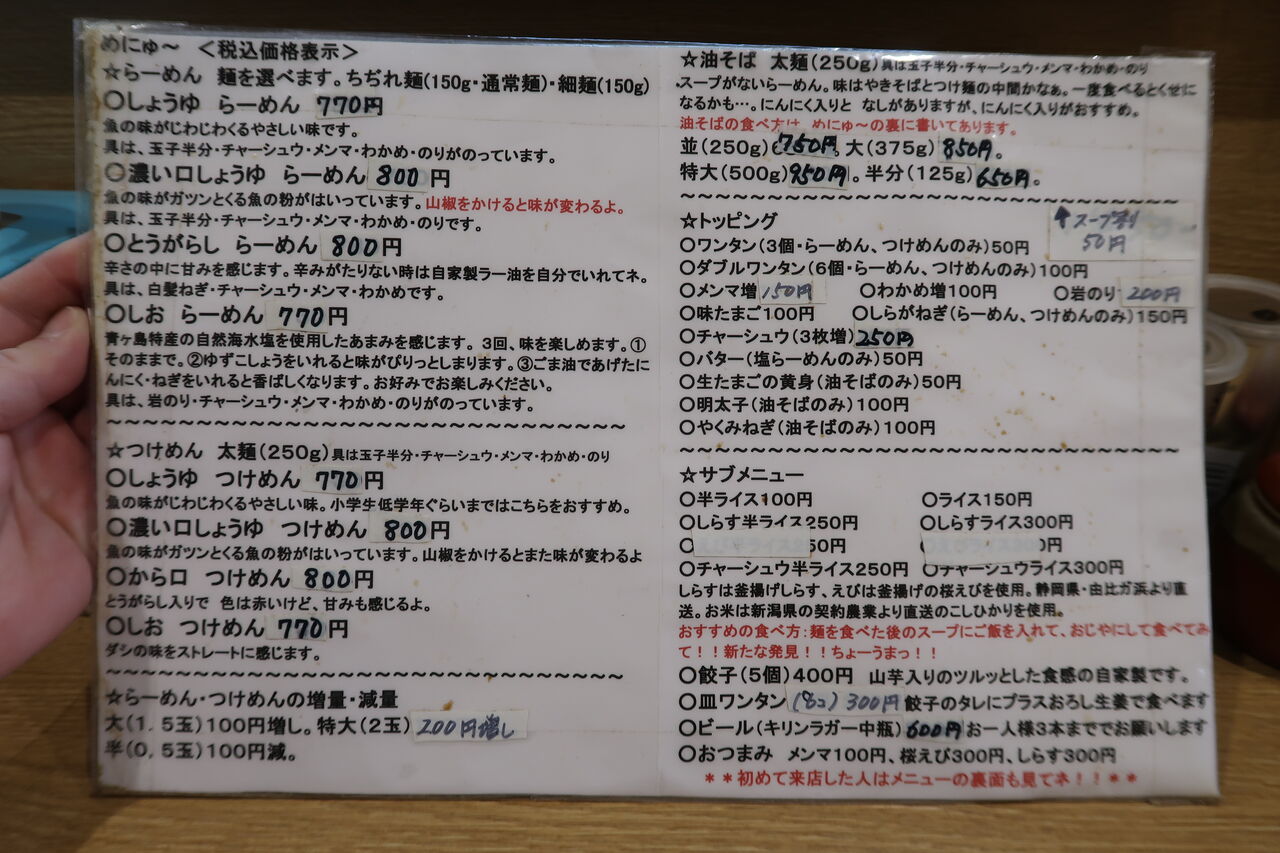 めにゅ～ ＜税込価格表示＞
☆らーめん 麺を選べます。ちぢれ麺(150g・通常麺)・細麺(150g)
○しょうゆ らーめん 770円
魚の味がじわじわくるやさしい味です。
具は、玉子半分・チャーシュウ・メンマ・わかめ・のりがのっています。
○濃い口しょうゆ らーめん 800円
魚の味がガツンとくる魚の粉がはいっています。山椒をかけると味が変わるよ。
具は、玉子半分・チャーシュウ・メンマ・わかめ・のりです。
○とうがらし らーめん 800円
辛さの中に甘みを感じます。辛みがたりない時は自家製ラー油を自分でいれてネ。
具は、白髪ねぎ・チャーシュウ・メンマ・わかめです。
○しお らーめん 770円
青ヶ島特産の自然海水塩を使用したあまみを感じます。3回、味を楽しめます。①
そのままで。②ゆずこしょうをいれると味がぴりっとしまります。③ごま油であげたに
んにく・ねぎをいれると香ばしくなります。お好みでお楽しみください。
具は、岩のり・チャーシュウ・メンマ・わかめ・のりがのっています。
～～～～～～～～～～～～～～～～～～～～～～～～～～～～
☆つけめん 太麺(250g)具は玉子半分・チャーシュウ・メンマ・わかめ・のり
○しょうゆ つけめん 770円
魚の味がじわじわくるやさしい味。小学生低学年ぐらいまではこちらをおすすめ。
○濃い口しょうゆ つけめん 800円
魚の味がガツンとくる魚の粉がはいっています。山椒をかけるとまた味が変わるよ
○から口 つけめん 800円
とうがらし入りで 色は赤いけど、甘みも感じるよ。
○しお つけめん 770円
ダシの味をストレートに感じます。
～～～～～～～～～～～～～～～～～～～～～～～～～～～～
☆らーめん・つけめんの増量・減量
大(1.5玉)100円増し。特大(2玉)200円増し
半(0.5玉)100円減。
☆油そば 太麺(250g)具は玉子半分・チャーシュウ・メンマ・わかめ・のり
スープがないらーめん。味はやきそばとつけ麺の中間かなぁ。一度食べるとくせに
なるかも…。にんにく入りと なしがありますが、にんにく入りがおすすめ。
油そばの食べ方は、めにゅ～の裏に書いてあります。
並(250g)750円。大(375g)850円。
特大(500g)950円。半分(125g)650円。
～～～～～～～～～～～～～～～～～～～～～～～～～～～
☆トッピング
↑スープ割
50円
○ワンタン(3個・らーめん、つけめんのみ)50円
○ダブルワンタン(6個・らーめん、つけめんのみ)100円
○メンマ増150円 ○わかめ増100円 ○岩のり200円
○味たまご100円 ○しらがねぎ(らーめん、つけめんのみ)150円
○チャーシュウ(3枚増)250円
○バター(塩らーめんのみ)50円
○生たまごの黄身(油そばのみ)50円
○明太子(油そばのみ)100円
○やくみねぎ(油そばのみ)100円
～～～～～～～～～～～～～～～～～～～～～～～～～～～
☆サブメニュー
○半ライス100円 ○ライス150円
○しらす半ライス250円 ○しらすライス300円
○ 50円 ○ 0円
○チャーシュウ半ライス250円 ○チャーシュウライス300円
しらすは釜揚げしらす、えびは釜揚げの桜えびを使用。静岡県・由比ガ浜より直
送。お米は新潟県の契約農業より直送のこしひかりを使用。
おすすめの食べ方：麺を食べた後のスープにご飯を入れて、おじやにして食べてみ
て！！新たな発見！！ちょーうまっ！！
○餃子(5個)400円 山芋入りのツルッとした食感の自家製です。
○皿ワンタン(8コ)300円 餃子のタレにプラスおろし生姜で食べます
○ビール(キリンラガー中瓶)600円 お一人様3本まででお願いします
○おつまみ メンマ100円、桜えび300円、しらす300円
＊＊初めて来店した人はメニューの裏面も見てネ！！＊＊